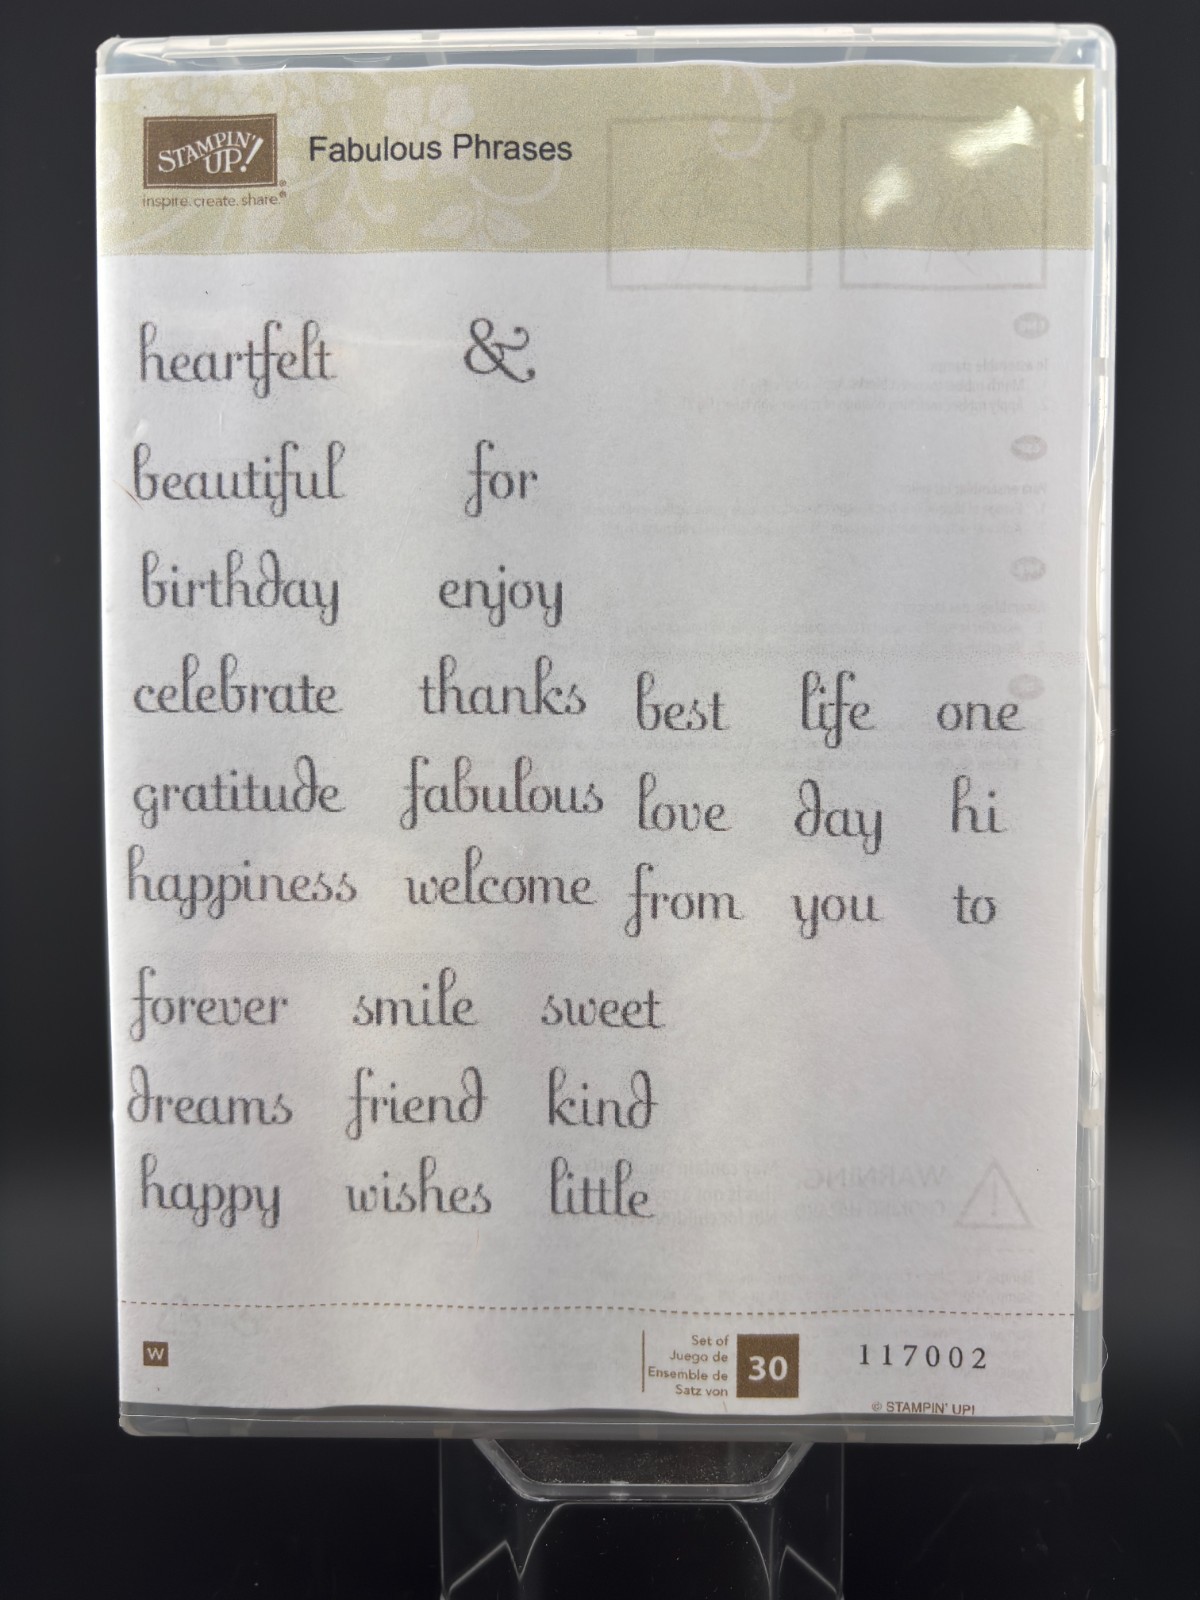 STAMPIN' UP!
inspire. create. share.®
Fabulous Phrases
heartfelt &
beautiful for
birthday enjoy
celebrate thanks best life one
gratitude fabulous love day hi
happiness welcome from you to
forever smile sweet
dreams friend kind
happy wishes little
WARNING
W
Set of
Juego de
Ensemble de
Satz von
30
117002
© STAMPIN' UP!